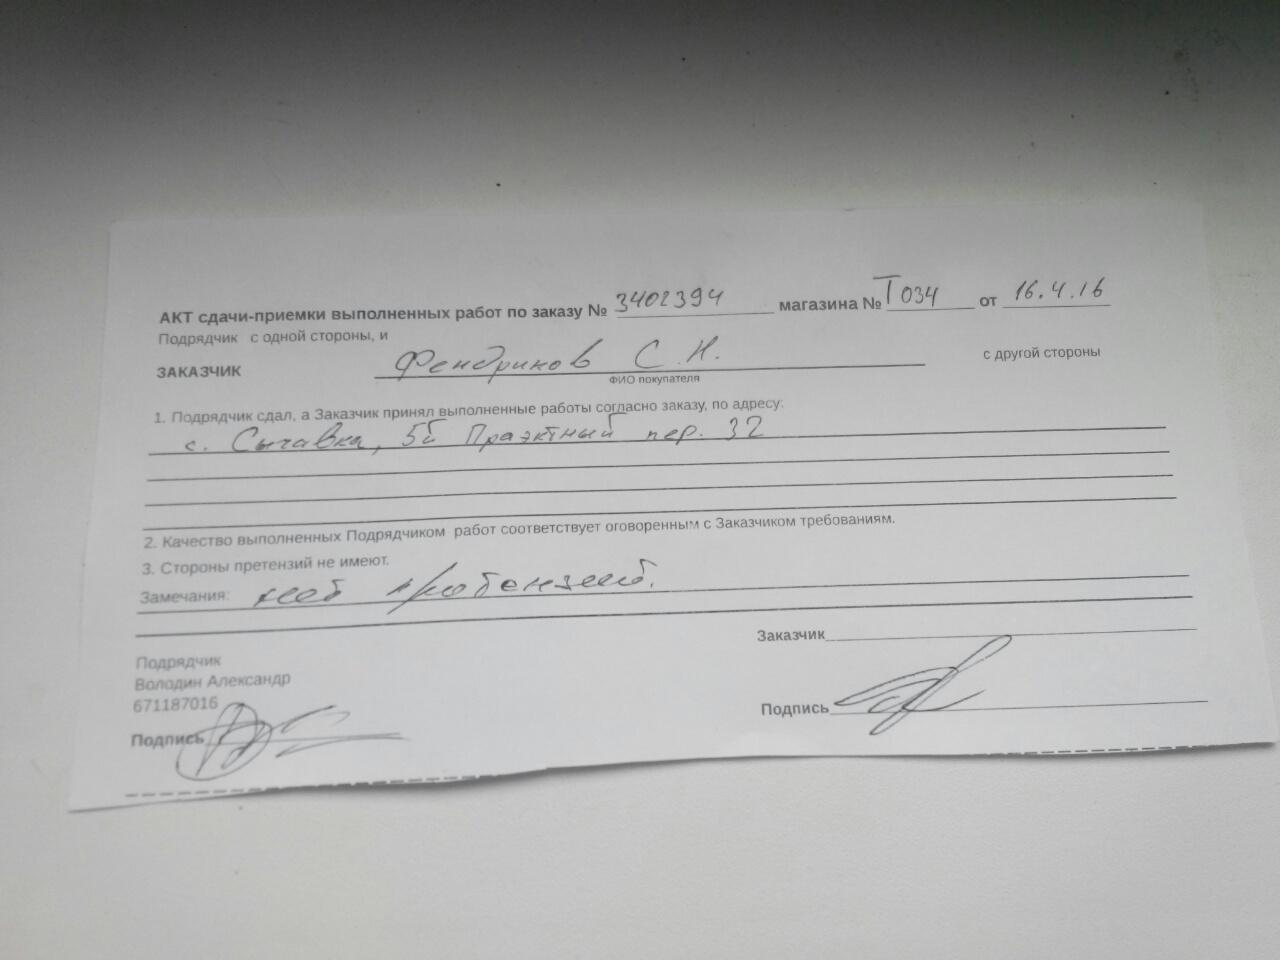 АКТ сдачи-приемки выполненных работ по заказу № 3402394 магазина № Т034 от 16.4.16
Подрядчик с одной стороны, и
ЗАКАЗЧИК Фендриков С.Н. с другой стороны
ФИО покупателя
1. Подрядчик сдал, а Заказчик принял выполненные работы согласно заказу, по адресу:
с. Сычавка, 5й Праэктный пер. 32
2. Качество выполненных Подрядчиком работ соответствует оговоренным с Заказчиком требованиям.
3. Стороны претензий не имеют.
Замечания:
Заказчик
Подрядчик
Володин Александр
671187016
Подпись
Подпись